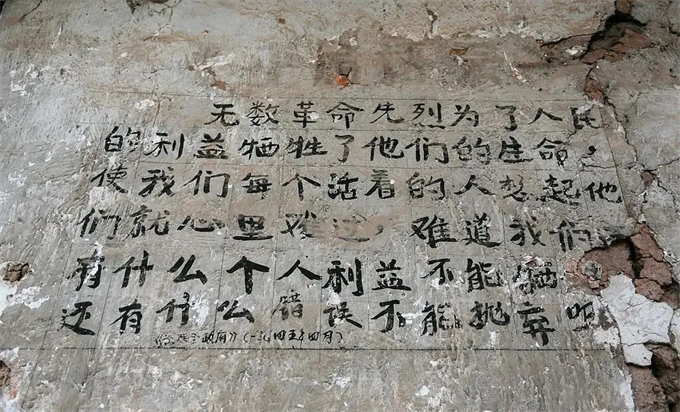 无数革命先烈为了人民
的利益牺牲了他们的生命，
使我们每个活着的人想起他
们就心里难过，难道我们还
有什么个人利益不能牺
还有什么错误不能抛弃呢
《论联合政府》（一九四五年四月）